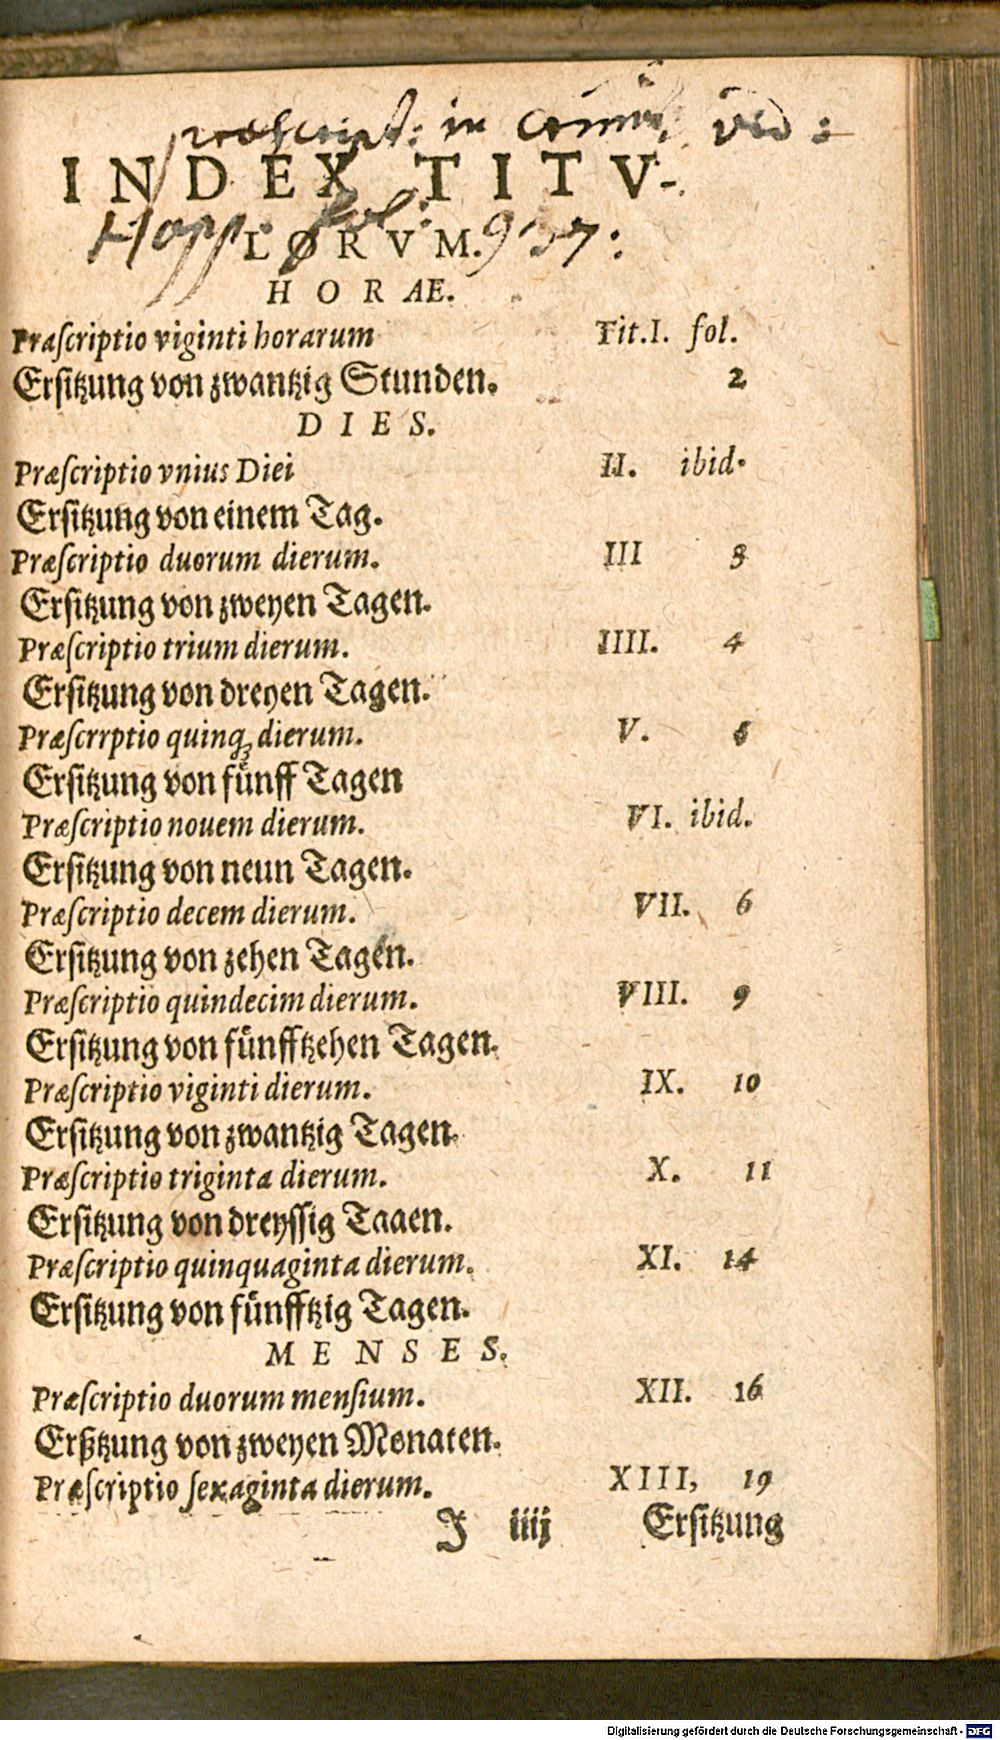 præscript: in Crimin, vid:
INDEX TITV-
Hopp. fol: 957:
LORVM.
HORAE.
Præſcriptio viginti horarum Tit.I. fol.
Erſitzung von zwantzig Stunden. 2
DIES.
Præſcriptio vnius Diei II. ibid.
Erſitzung von einem Tag.
Præſcriptio duorum dierum. III 3
Erſitzung von zweyen Tagen.
Præſcriptio trium dierum. IIII. 4
Erſitzung von dreyen Tagen.
Præſcrrptio quinq; dierum. V. 5
Erſitzung von fuͤnff Tagen
Præſcriptio nouem dierum. VI. ibid.
Erſitzung von neun Tagen.
Præſcriptio decem dierum. VII. 6
Erſitzung von zehen Tagen.
Præſcriptio quindecim dierum. VIII. 9
Erſitzung von fuͤnfftzehen Tagen.
Præſcriptio viginti dierum. IX. 10
Erſitzung von zwantzig Tagen.
Præſcriptio triginta dierum. X. 11
Erſitzung von dreyſſig Taaen.
Præſcriptio quinquaginta dierum. XI. 14
Erſitzung von fuͤnfftzig Tagen.
MENSES.
Præſcriptio duorum menſium. XII. 16
Erßtzung von zweyen Monaten.
Præſcriptio ſexaginta dierum. XIII, 19
J iiij Erſitzung
Digitalisierung gefördert durch die Deutsche Forschungsgemeinschaft - DFG